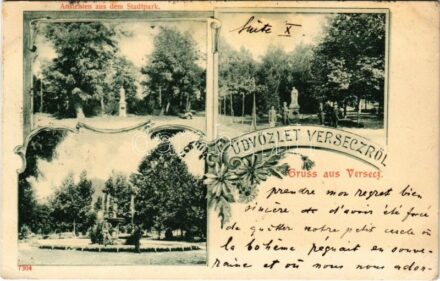 Ansichten aus dem Stadtpark.
Suite X
ÜDVÖZLET VERSECZRŐL
Gruss aus Versecz.
prendre mon regret bien
sincère de d'avoir été forcé
de quitter notre petit cercle où
la bohème régnait en souve-
raine et où nous nous adon-
7304